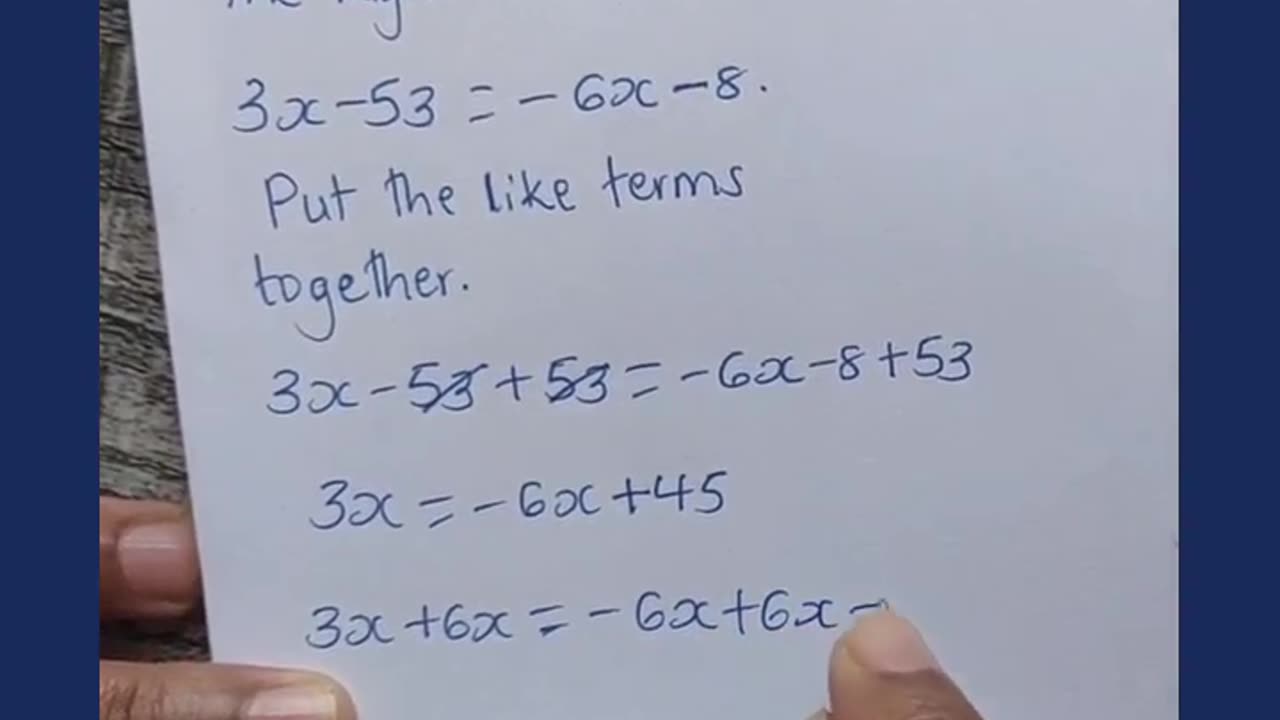 3x-53 = -6x-8.
Put the like terms
together.
3x-53+53=-6x-8+53
3x=-6x+45
3x+6x=-6x+6x